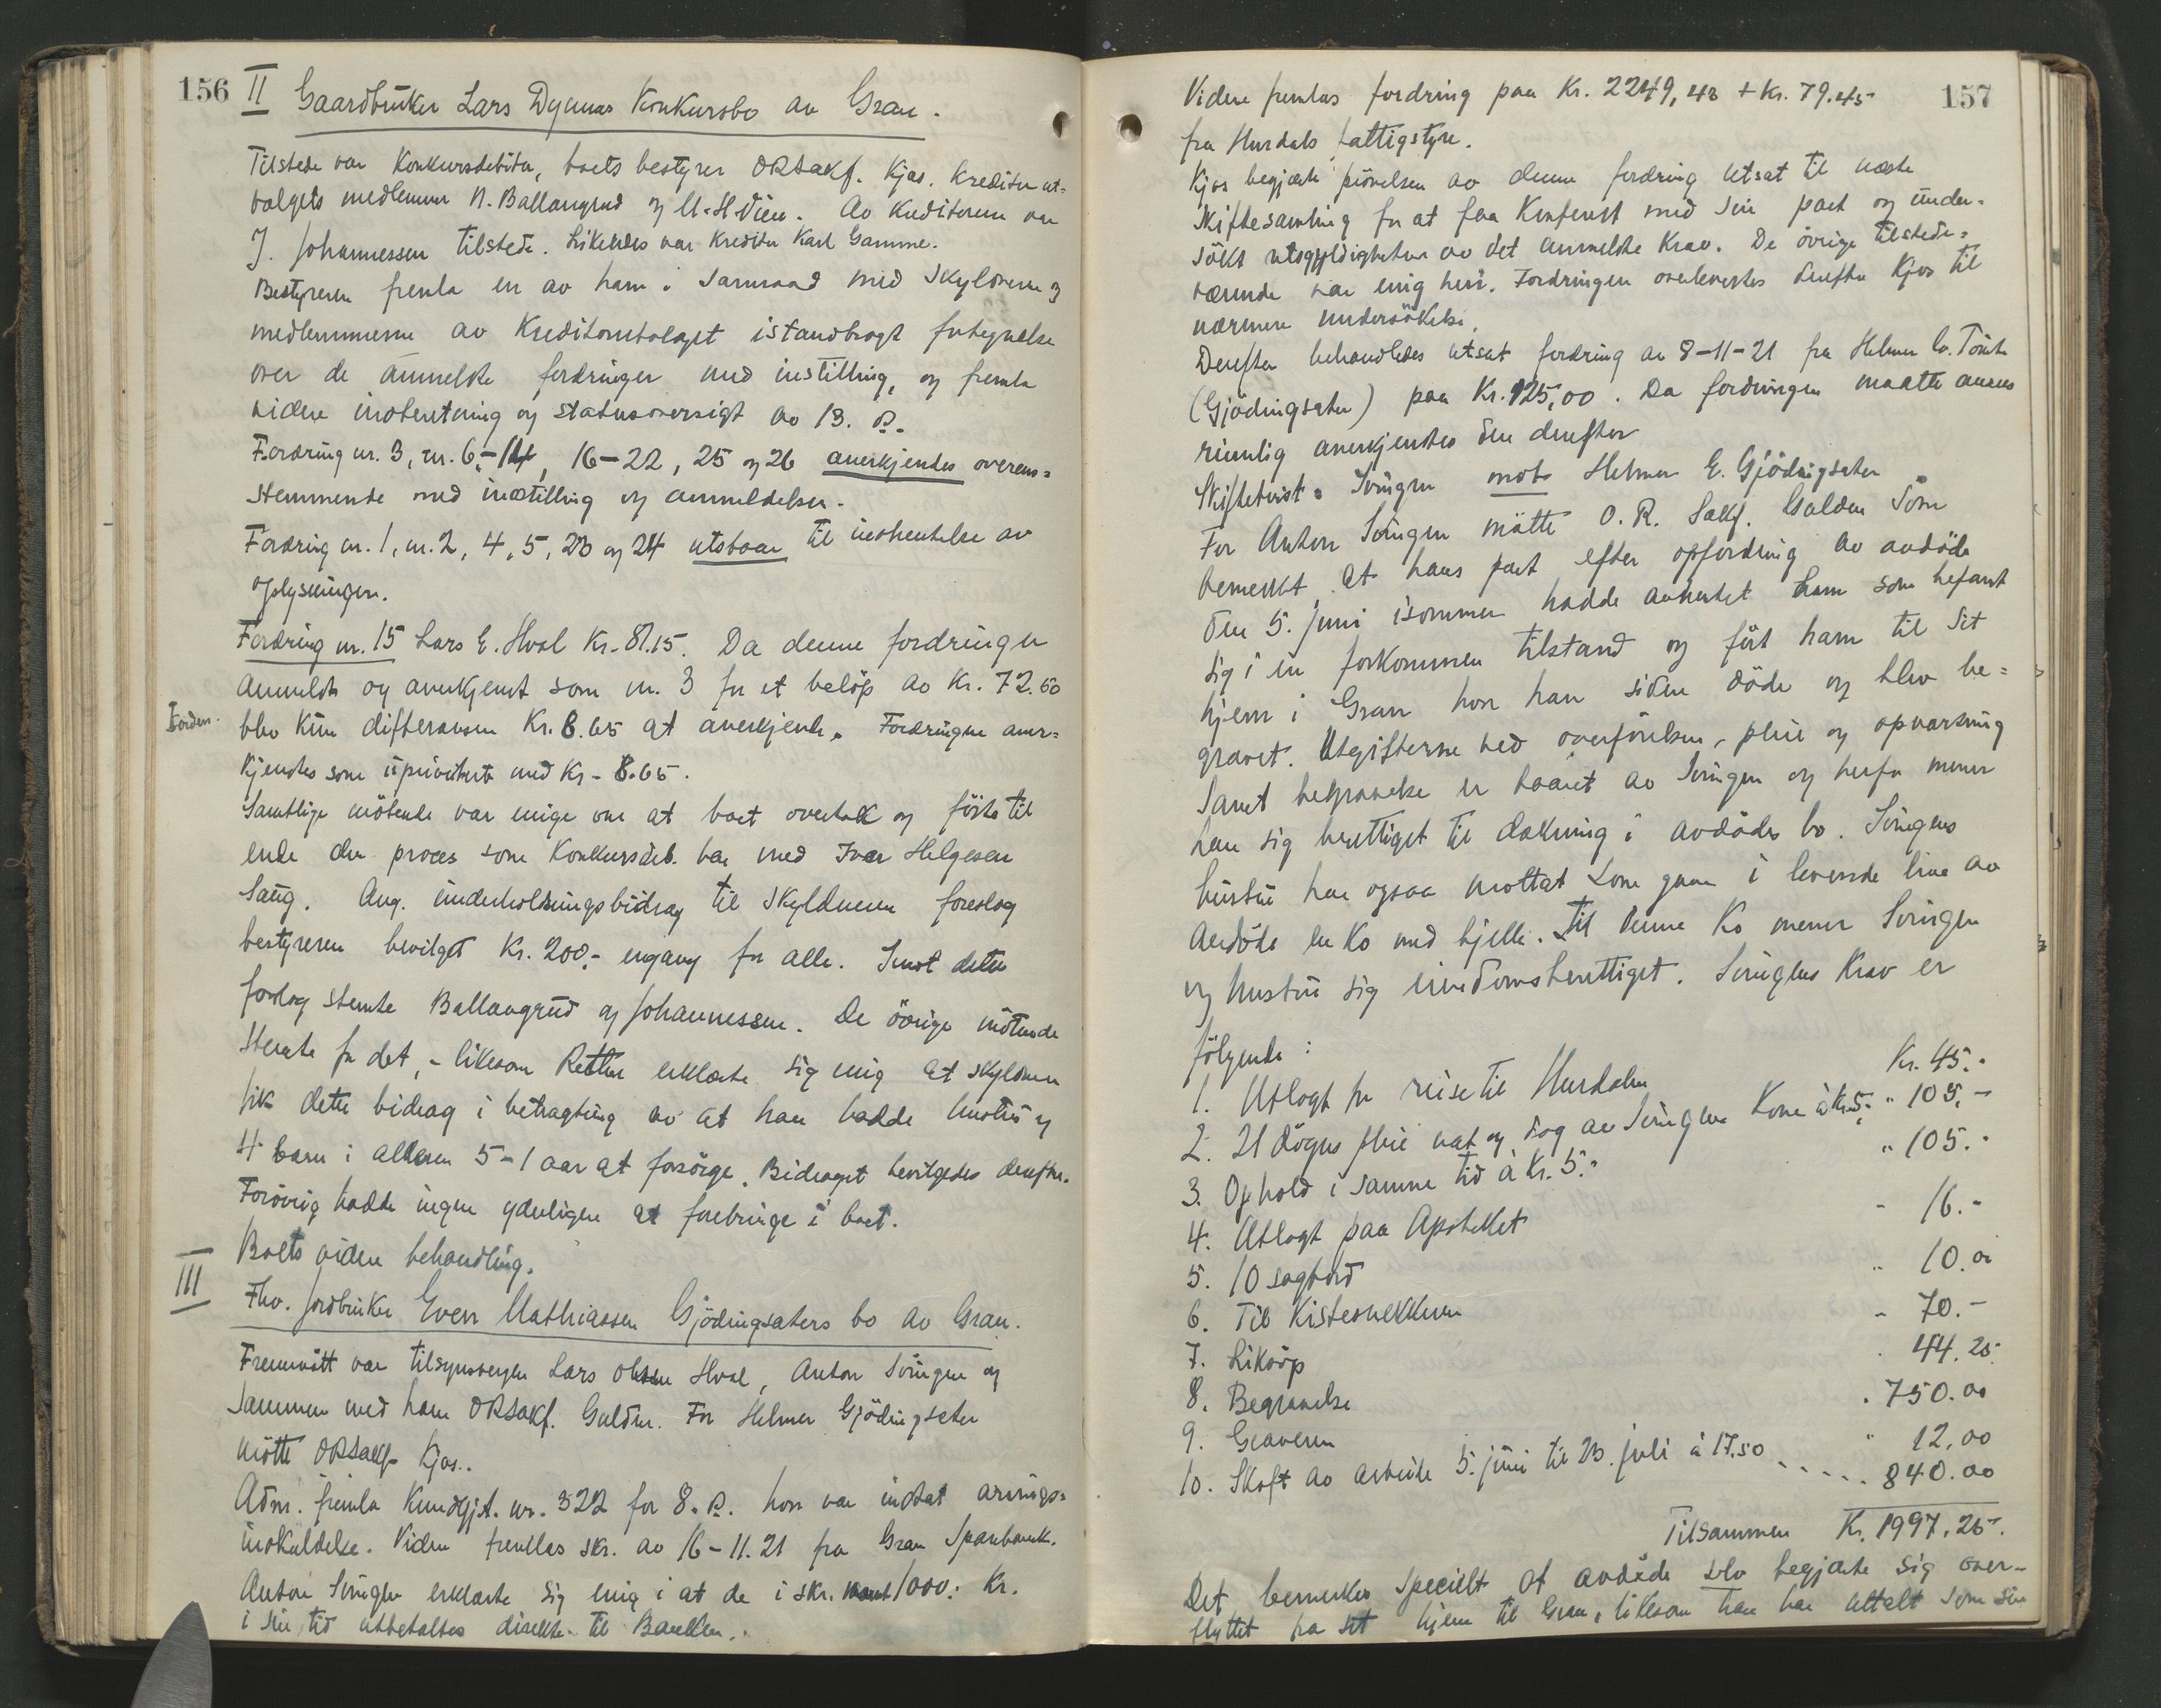 156
II Gaardbruker Lars Dynnas Konkursbo av Gran.
Tilstede var Konkursdebitor, boets bestyrer ORSakf. Kjos. Kreditorut-
valgets medlemmer N. Ballangrud og M. H. Vien. Av Kreditorene var
J. Johannessen tilstede. Likeledes var Kreditor Karl Gamme.
Bestyreren fremla en av ham i samraad med Skyldneren og
medlemmerne av Kreditorutvalget istandbragt fortegnelse
over de anmeldte fordringer med instilling, og fremla
videre indberetning og statusoversigt av 13. ds.
Fordring nr. 3, nr. 6-14, 16-22, 25 og 26 anerkjendes overens-
stemmende med instilling og anmeldelsen.
Fordring nr. 1, nr. 2, 4, 5, 23 og 24 utstaar til indhentelse av
oplysninger.
Fordring nr. 15 Lars E. Hval Kr. 81.15. Da denne fordring er
anmeldt og anerkjent som nr. 3 for et beløp av Kr. 72.50
blev kun differansen Kr. 8.65 at anerkjende. Fordringen aner-
kjendes som uprioritert med Kr. 8.65.
Samtlige møtende var enige om at boet overtok og førte til
ende den proces som Konkursdeb. har med Iver Helgesen
Saug. Ang. underholdningsbidrag til Skyldneren foreslog
bestyreren bevilget Kr. 200,- engang for alle. Imot dette
forslag stemte Ballangrud og Johannessen. De øvrige møtende
stemte for det, - likesom Retten erklærte sig enig at skyldneren
fik dette bidrag i betragtning av at han hadde hustru og
4 barn i alderen 5-1 aar at forsørge. Bidraget bevilgedes derefter.
Forøvrig hadde ingen yderligere at forebringe i boet.
Boets videre behandling.
III
Fhv. jordbruker Even Mathiassen Gjødingsæters bo av Gran.
Fremmøtt var tilsynsverge Lars Olsen Hval, Anton Svingen og
sammen med ham ORSakf. Gulden. For Helmer Gjødingsæter
møtte ORSakf. Kjos.
Adm. fremla Kundgjt. nr. 322 for 8. ds. hvor var indtat arvings-
indkaldelse. Videre fremlas skr. av 16-11.21 fra Gran Sparebank.
Anton Svingen erklærte sig enig i at de i skr. 1000. Kr.
i sin tid utbetaltes direkte til Banken.
157
Videre fremlas fordring paa Kr. 2249,43 + Kr. 79.45
fra Hurdals fattigstyre.
Kjos begjærte prøvelsen av denne fordring utsat til næste
Skiftesamling for at faa Konferert med sin part og under-
søkt av det anmeldte Krav. De øvrige tilstede-
værende var enig heri. Fordringen overleveres derefter Kjos til
nærmere undersøkelse.
Derefter behandledes utsat fordring av 8-11-21 fra Helmer
(Gjødingsæter) paa Kr. 125,00. Da fordringen maatte ansees
rimelig anerkjendes den derefter
Skiftetvist: Svingen mot Helmer E. Gjødingsæter
For Anton Svingen møtte O.R. Sakf. Gulden som
bemerket at hans part efter opfordring av avdøde
den 5. juni isommer hadde avhentet ham som befant
sig i en forkommen tilstand og ført ham til sit
hjem i Gran hvor han siden døde og blev be-
gravet. Utgifterne ved overførelsen, pleie og opvartning
samt begravelse er baaret av Svingen og herfor mener
han sig berettiget til dækning i avdødes bo. Svingens
hustru har ogsaa mottat som gave i levende live av
avdøde en Ko med bjelle. Til denne Ko mener Svingen
og hustru sig eiendomsberettiget. Svingens Krav er
følgende:
1. Utlagt for reise til Hurdalen Kr. 45.-
2. 21 døgns pleie nat og dag av Svingens Kone à Kr. 5.- " 105.-
3. Ophold i samme tid à Kr. 5.- " 105.-
4. Utlagt paa Apoteket - 16.-
5. 10 sagbord " 10.00
6. Til Kistesnekkeren - 70.-
7. Liksøp - 44.25
8. Begravelse - 750.00
9. Graveren " 12,00
10. Skoft av arbeide 5. juni til 23. juli à 17.50 ..... 840.00
Tilsammen Kr. 1997.25.
Det bemerkes specielt at avdøde selv begjærte sig over-
flyttet fra sit hjem til Gran, likesom han har uttalt som sin